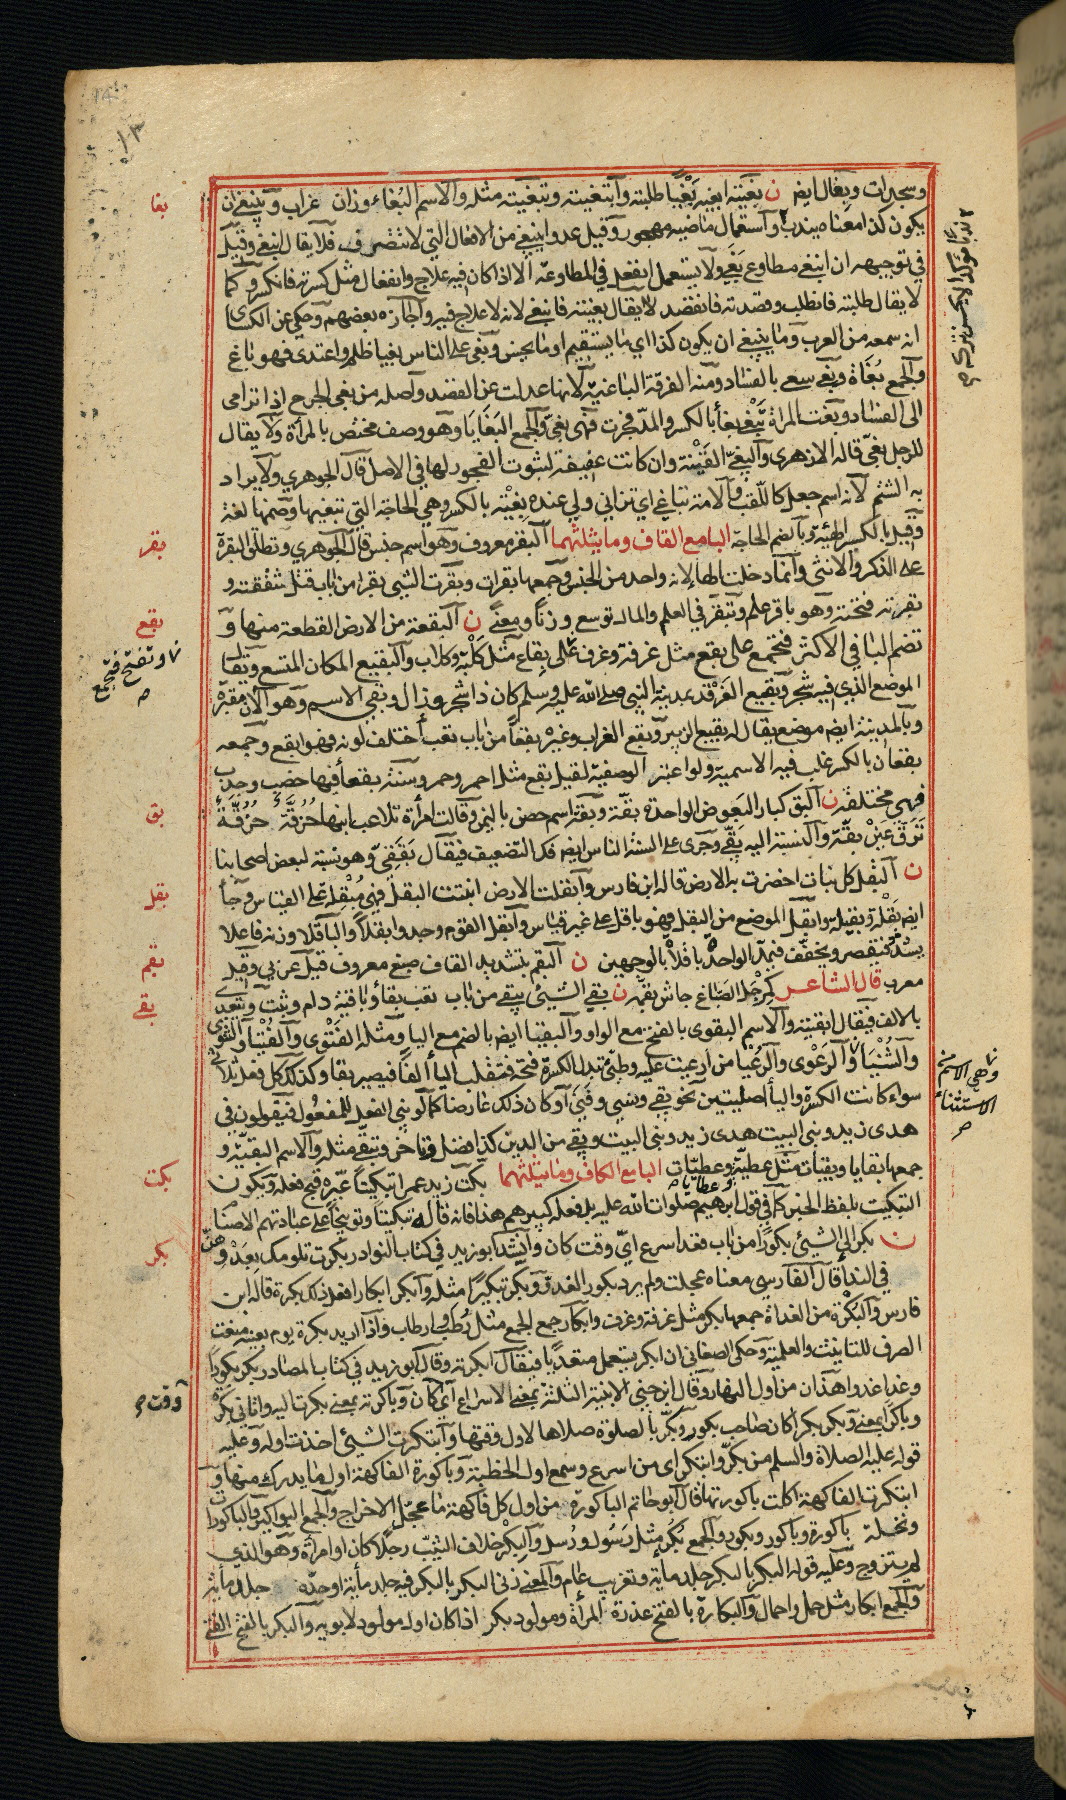 وسجدات وبغال ايض ن بغيته ابغيه بَغْيًا طلبته وآبتغيته وتبغيته مثله والاسم البُغاء وزان غراب وينبغي ان
يكون كذا معناه يندب وآستعمال ماضيه مهجور وقيل عدوا ينبغي من الافعال التي لا تتصرف فلا يقال انبغى وقيل
في توجيهه ان انبغى مطاوع بغى ولا يستعمل انفعل في المطاوعة الا اذا كان فيه علاج وانفعال مثل كسرته فانكسر وكما
لا يقال طلبته فانطلب وقصدته فانقصد لا يقال بغيته فانبغى لانه لا علاج فيه وآجازه بعضهم وحكي عن الكسائى
انه سمعه من العرب وما ينبغي ان يكون كذا اي ما يستقيم او ما يحسن وبغى على الناس بغيا ظلم واعتدى فهو باغ
والجمع بُغَاة وبغى سعى بالفساد ومنه الفرقة الباغية لانها عدلت عن القصد وآصله من بغى الجرح اذا ترامى
الى الفساد وبغت المرأة تَبْغي بغأ بالكسر والمد فجرت فهى بغيّ والجمع البَغَايَا وهو وصف مختص بالمرأة ولا يقال
للرجل بغيّ قاله الازهرى وآلبغيّ القَيْنة وان كانت عفيفة لثبوت الفجور لها في الاصل قال الجوهري ولا يراد
به الشتم لانه اسم جعل كاللقب والامة تباغي اي تزانى ولي عنده بِغْيَة بالكسر وهي الحاجة التي تبغيها وضمها لغة
وقيل بالكسر الهيئة وبالضم الحاجة البا مع القاف وما يثلثهما آلبقر معروف وهو اسم جنس قال الجوهري وتطلق البقرة
على الذكر والانثى وآنما دخلت الها لانه واحد من الجنس وجمعها بقرات وبقرت الشى بقرا من باب قتل شققته و
بقرته فتحته وهو باقر علم وتبقر في العلم والمال توسع وزنًا ومعنًى ن آلبقعة من الارض القطعة منها و
تضم البا في الاكثر فتجمع على بقع مثل غرفة وغرف وعلى بقاع مثل كَلْبَة وكلاب وآلبقيع المكان المتسع ويقا
الموضع الذي فيه شجر وبقيع الغرقد بمدينة النبي صلى الله عليه وسلم كان ذا شجر وزال وبقي الاسم وهو الآن مقبرة
وبالمدينة ايض موضع يقال له بقيع الزبير وبقع الغراب وغيره بقعاً من باب تعب اختلف لونه فهو ابقع وجمعه
بقعان بالكسر غلب فيه الاسمية ولو اعتبر الوصفية لقيل بقع مثل احمر وحمر وسنة بقعأ فيها خصب وجدب
فهي مختلفة ن آلبق كبار البعوض الواحدة بقّة وبقة اسم حصن باليمن وقالت امرأة تلاعب ابنها حُزُقَّةٌ حُزُقَّةٌ
تَرَقَّ عَيْنَ بقّة وآلنسبة اليه بَقّي وجرى على السنة الناس ايض فك التضعيف فيقال بَقَقِيّ وهو نسبة لبعض اصحابنا
ن آلبقل كل نبات اخضرت به الارض قاله ابن فارس وآبقلت الارض انبتت البقل فهي مُبْقِلة على القياس وجأ
ايض بَقْلَة وبقيلة وابقل الموضع من البقل فهو باقل على غير قياس وآبقل القوم وجدوا بقلاً والباقلا وزنه فاعلا
يشدد فيقصر ويخفف فيمد الواحدة باقلاة بالوجهين ن آلبقم بتشديد القاف صبغ معروف قيل عربي وقيل
معرب قال الشاعر كمِرْجَل الصبّاغ جاش بقمه ن بقي الشئ يبقى من باب تعب بقأ وباقية دام وثبت ويتعدى
بالالف فيقال ابقيته والاسم البقوى بالفتح مع الواو والبقيا ايض بالضم مع اليا ومثله الفَتْوَى والفُتْيَا والثنوى
والثُنْيَا والرَّعْوى والرُّعْيا من ارعيت عليه وطيّئ تبدل الكسرة فتحة فتقلب اليأ ألفاً فيصير بقا وكذلك كل فعل ثلاثي
سواء كانت الكسرة واليأ اصليتين نحو بقي ونسي وفني آو كان ذلك عارضا كما لو بني الفعل للمفعول فيقولون في
هدى زيد وبنى البيت هدى زيد وبنى البيت وبقي من الدين كذا فضل وتاخر وتبقّى مثله والاسم البقيّة و
جمعها بقايا وبقيات مثل عطيّة وعطيّات وعطايا ص البا مع الكاف وما يثلثهما بكّت زيد عمرا تبكيتًا عيّره وقبح فعله ويكون
التبكيت بلفظ الخبر كما في قول ابرهيم صلوات الله عليه بل فعله كبيرهم هذا فانه قاله تبكيتا وتوبيخًا على عبادتهم الاصنا
ن بكر الى الشيئ بكورًا من باب قعد اسرع ايّ وقت كان وآنشد ابو زيد في كتاب النوادر بكرت تلومك بعَدْ وهنٍ
في الندأ قال الفارسي معناه عجلت ولم يرد بكور الغدو وبكر تبكيرًا مثله وآبكر ابكارا فعل ذلك بكرة قاله ابن
فارس والبُكْرة من الغداة جمعها بكر مثل غرفة وغرف وابكار جمع الجمع مثل رُطَب وارطاب وآذا اريد بكرة يوم بعينه منعت
الصرف للتانيث والعلمية وحكى الصغاني ان ابكر يستعمل متعديًا فيقال ابكرته وقال ابو زيد في كتاب المصادر بكر بكورًا
وغدا غدوا هذان من اول النهار وقال ابن جني الابنية الثلثة بمعنى الاسراع ايّ كان وباكرته بمعنى بكرت اليه واتاني بكرة
وباكرًا بمعنى وبكر بكرا كان صاحب بكور وبكّر بالصلوة صلاها لاول وقتها وآبتكرت الشيئ اخذت اوله وعليه
قوله عليه الصلاة والسلم من بكّر وابتكر اى من اسرع وسمع اول الخطبة وباكورة الفاكهة اول ما يدرك منها و
ابتكرت الفاكهة اكلت باكورتها قال ابو حاتم الباكورة من اول كل فاكهة ما عجّل الاخراج والجمع البواكير والباكورات
ونخلة باكورة وباكور وبكور والجمع بُكُر مثل رَسُول ورُسل والبِكْر خلاف الثيّب رجلًا كان او امرأة وهو الذي
لم يتزوج وعليه قوله البكر بالبكر جلد مأية وتغريب عام والمعنى زنى البكر بالبكر فيه جلد مأية او حدّه جلد مأية
والجمع ابكار مثل حمل واحمال والبكارة بالفتح عذرة المرأة ومولود بكر اذا كان اول مولود لابويه والبكر بالفتح الفتى
١٣
بغا
بقر
بقع
وتفتح فتجمع
ص
بق
بقل
بقم
بقي
بكت
بكر
وقت ص
وهي الاسم من
الاستثناء
ص